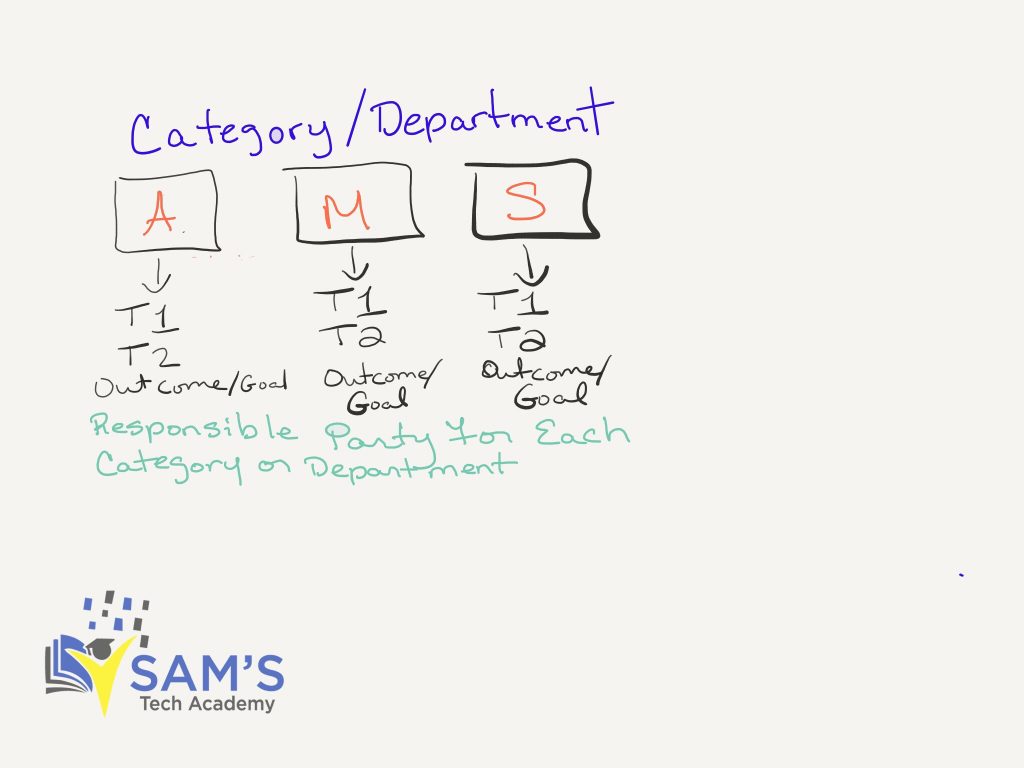 Category/Department
A M S
T1 T1 T1
T2 T2 T2
Outcome/Goal Outcome/ Outcome/
Goal Goal
Responsible Party For Each
Category or Department
SAM'S
Tech Academy